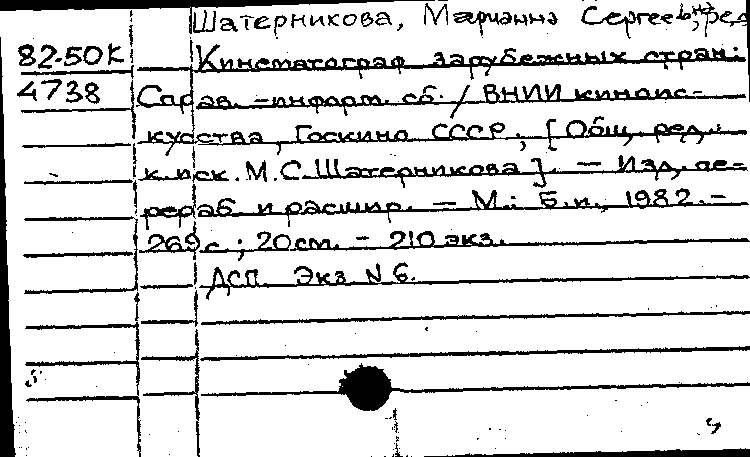 Шатерникова, Марианна Сергеевна, ред
82-50К Кинематограф зарубежных стран:
4738 Справ.-информ. сб. / ВНИИ киноис-
кусства, Госкино СССР; [Общ. ред.:
к.иск. М.С.Шатерникова]. — Изд. пе-
рераб. и расшир. — М.: Б.и., 1982. -
269с.; 20см. - 210 экз.
ДСП Экз N 6.